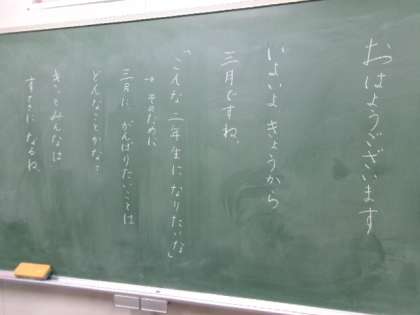 おはようございます
いよいよ きょうから
三月ですね。
「こんな 二年生に なりたいな」
→そのために
三月に がんばりたいことは
どんなことかな?
きっと みんなは
すてきに なるね。